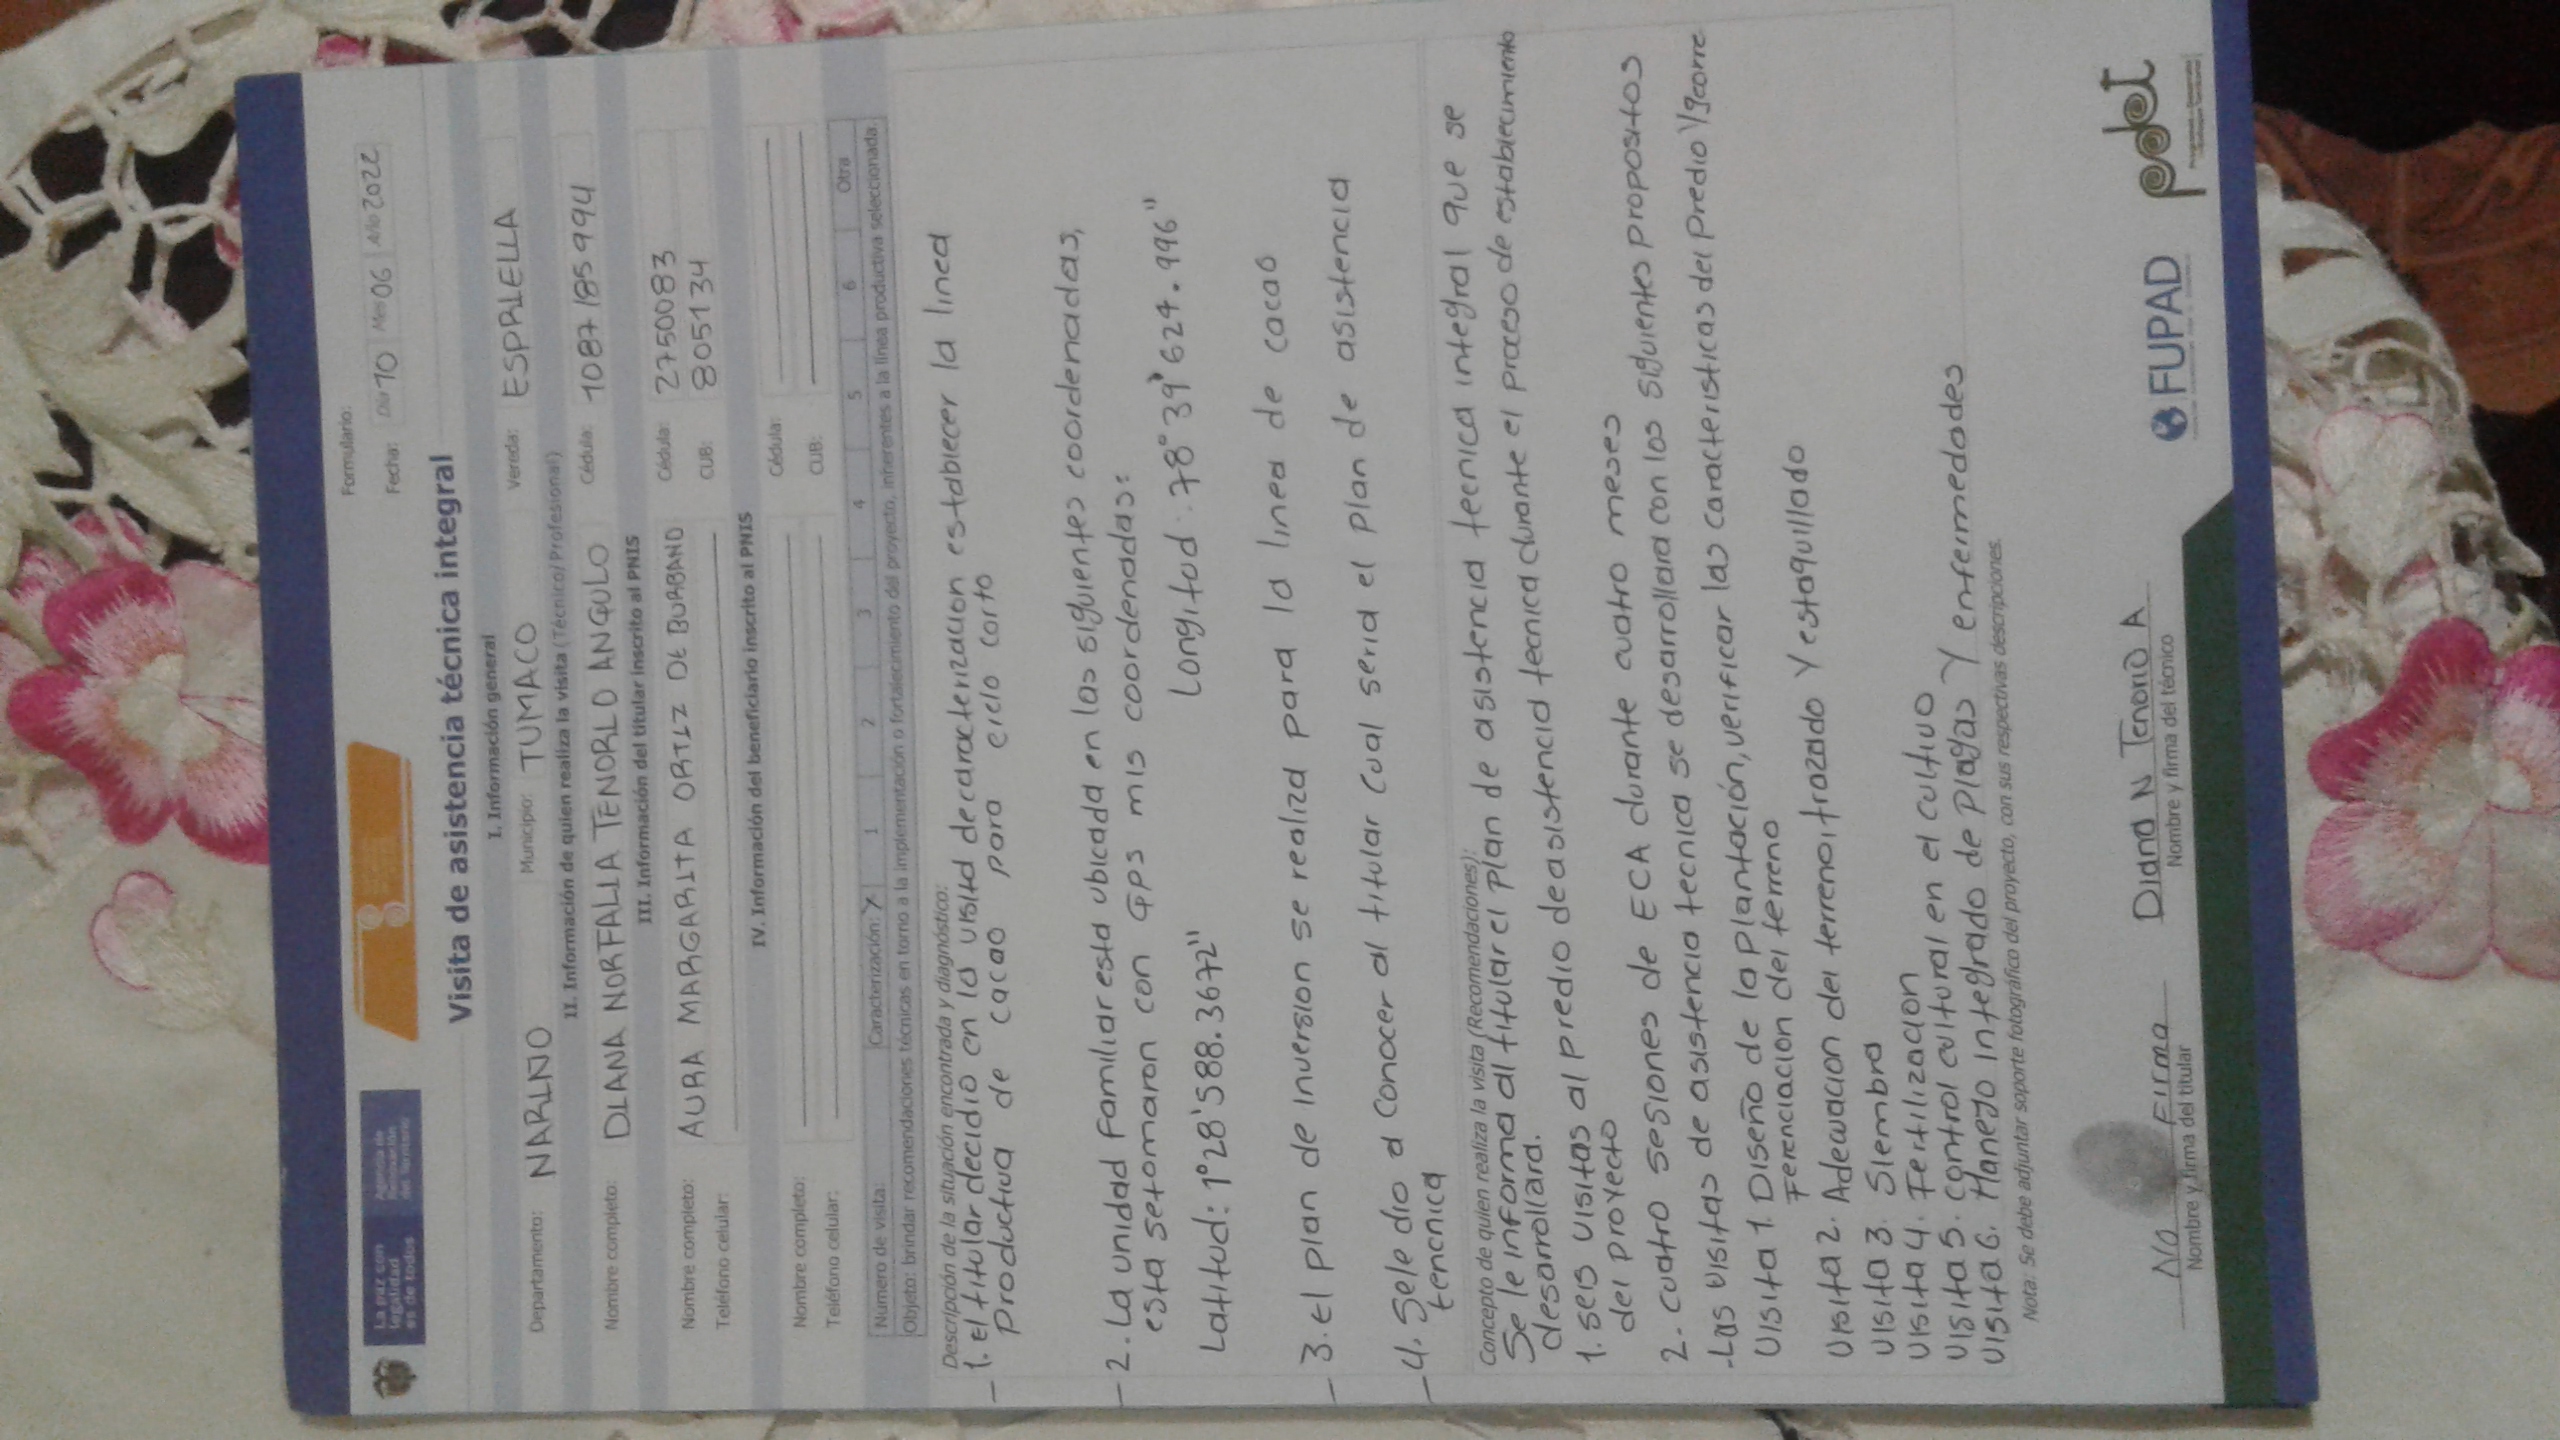 La paz con
legalidad
es de todos
Agencia de
Renovación
del Territorio
Formulario:
Fecha: Día 10 Mes 06 Año 2022
Visita de asistencia técnica integral
I. Información general
Departamento: NARIÑO Municipio: TUMACO Vereda: ESPRIELLA
II. Información de quien realiza la visita (Técnico/Profesional)
Nombre completo: DIANA NORFALIA TENORIO ANGULO Cédula: 1087185994
III. Información del titular inscrito al PNIS
Nombre completo: AURA MARGARITA ORTIZ DE BURBANO Cédula: 2750083
Teléfono celular: CUB: 805134
IV. Información del beneficiario inscrito al PNIS
Nombre completo: Cédula:
Teléfono celular: CUB:
Número de visita: Caracterización: X 1 2 3 4 5 6 Otra
Objeto: brindar recomendaciones técnicas en torno a la implementación o fortalecimiento del proyecto, inherentes a la línea productiva seleccionada.
Descripción de la situación encontrada y diagnóstico:
- 1. El titular decidio en la visita de caracterizacion establecer la linea
productiva de cacao para ciclo corto
- 2. La unidad familiar esta ubicada en las siguientes coordenadas,
esta se tomaron con GPS mis coordenadas:
Latitud: 1°28'588.3672" Longitud: 78°39'624.996"
- 3. El plan de inversion se realiza para la linea de cacao
- 4. Sele dio a conocer al titular cual seria el plan de asistencia
tencnica
Concepto de quien realiza la visita (Recomendaciones):
Se le informa al titular el plan de asistencia tecnica integral que se
desarrollara.
1. seis visitas al predio de asistencia tecnica durante el proceso de establecimiento
del proyecto
2. cuatro sesiones de ECA durante cuatro meses
-Las visitas de asistencia tecnica se desarrollara con los siguientes propositos
Visita 1. Diseño de la plantación, verificar las caracteristicas del predio y/georre
Ferenciacion del terreno
Visita 2. Adecuacion del terreno: trazado Y estaquillado
Visita 3. Siembra
Visita 4. Fertilizacion
Visita 5. control cultural en el cultivo
Visita 6. Manejo integrado de Plagas Y enfermedades
Nota: Se debe adjuntar soporte fotográfico del proyecto, con sus respectivas descripciones.
No Firma Diana N Tenorio A
Nombre y firma del titular Nombre y firma del técnico
FUPAD pdet